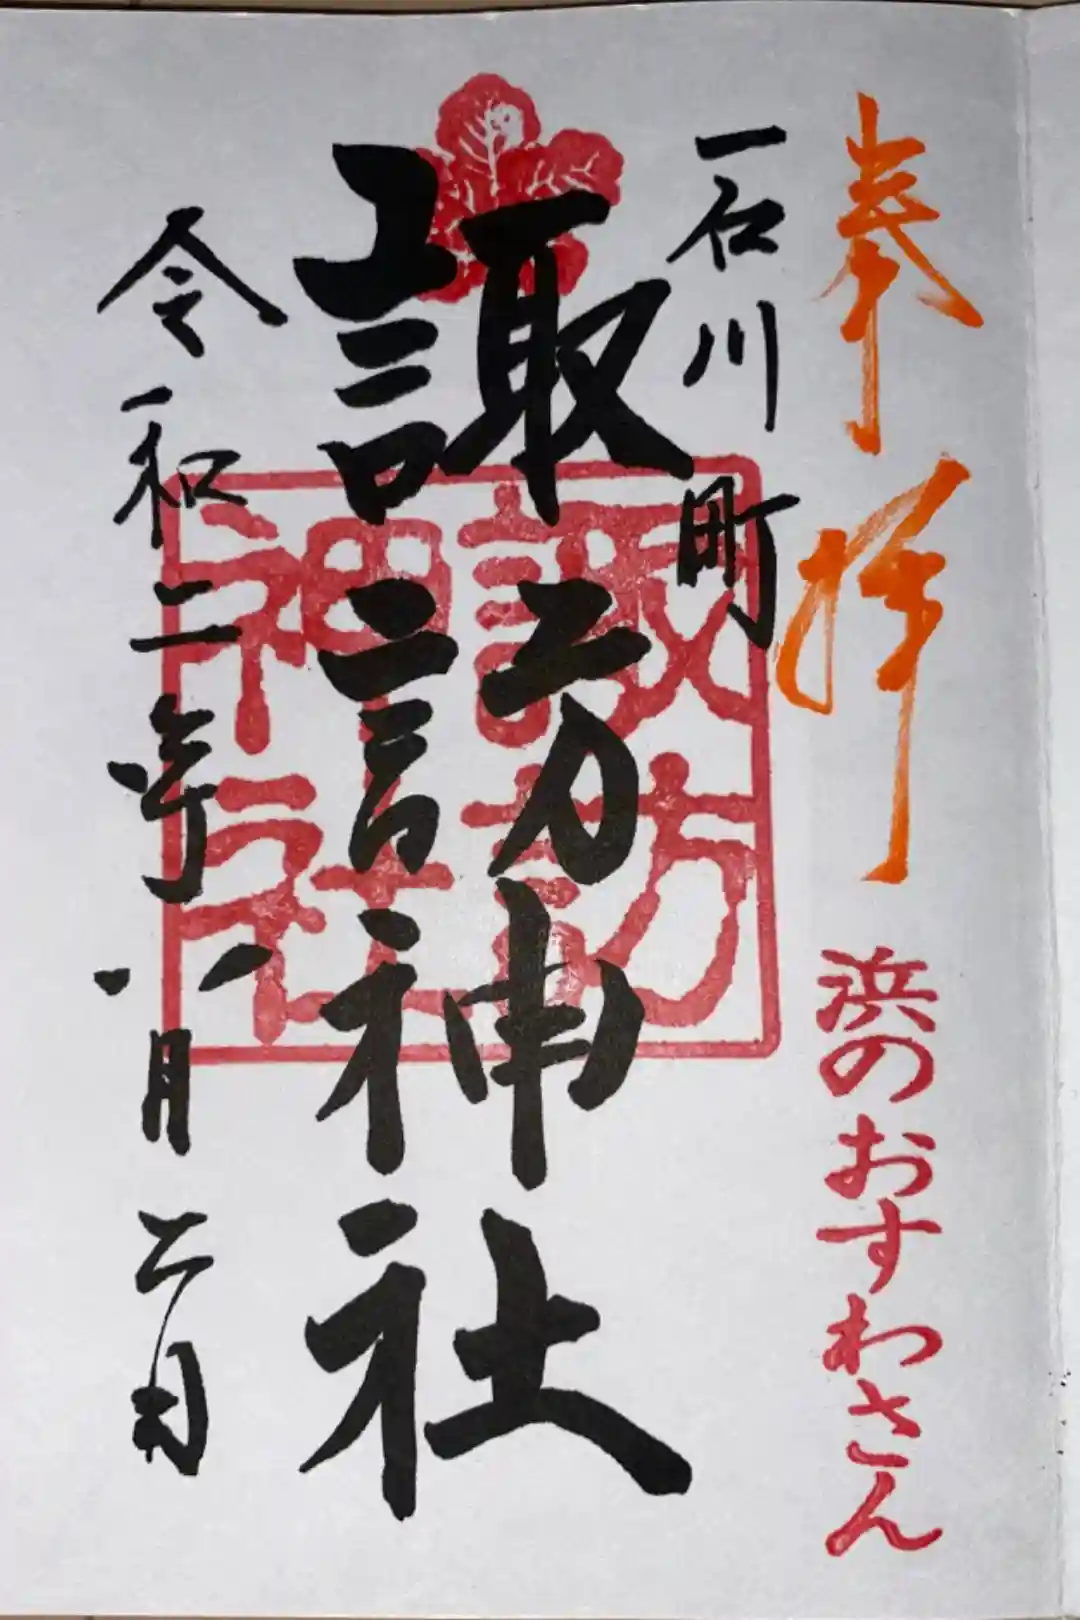 奉拝
浜のおすわさん
石川町
諏訪神社
諏訪
神社
令和二年八月二日